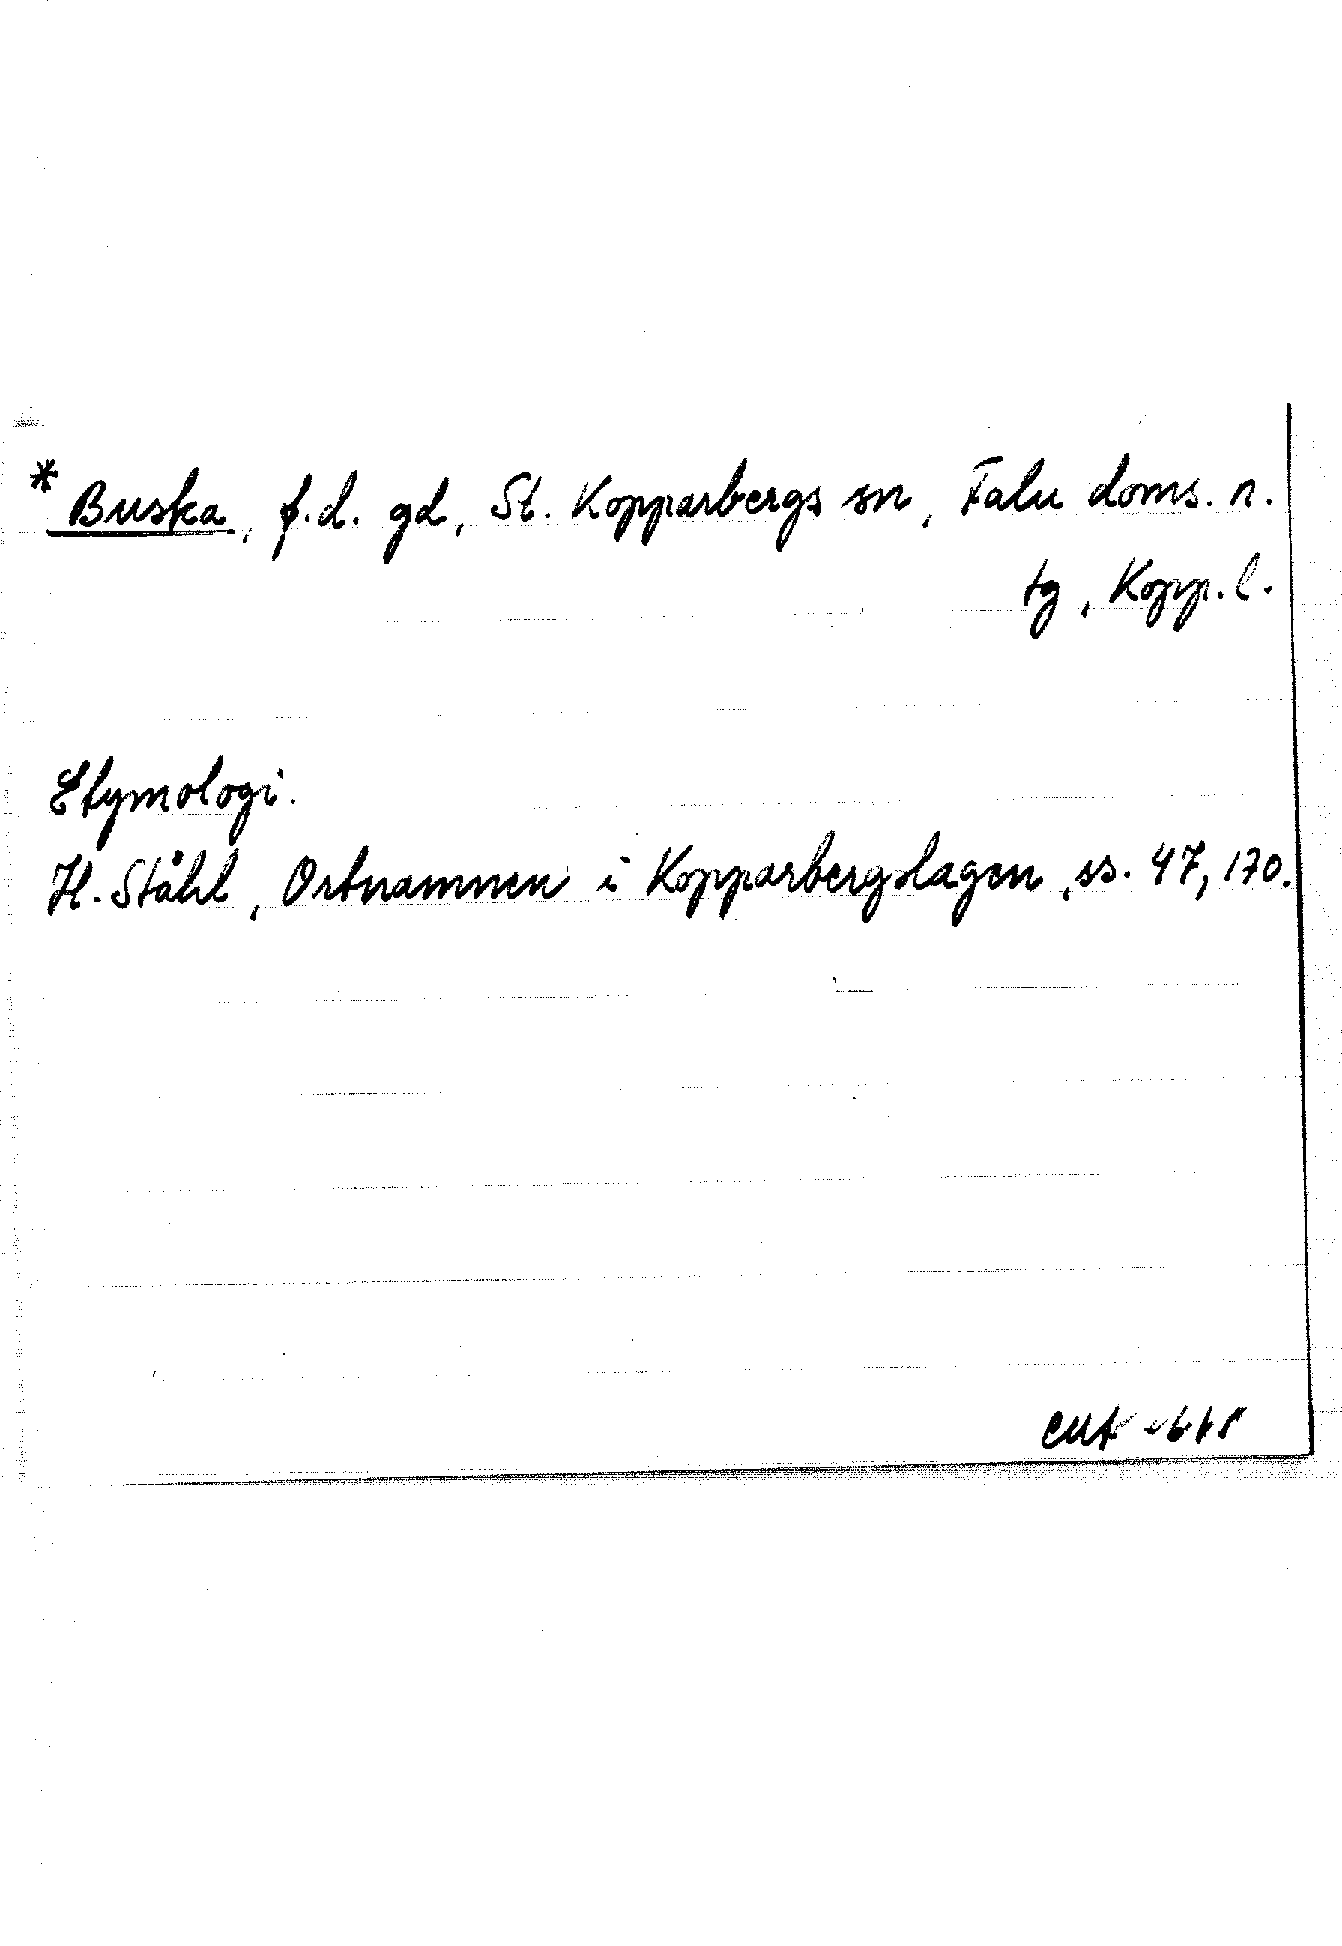 * Buska, f.d. gd, St. Kopparbergs sn, Falu doms. n.
tg, Kopp. l.
Etymologi.
H. Ståhl, Ortnamnen i Kopparbergslagen, ss. 47, 170.